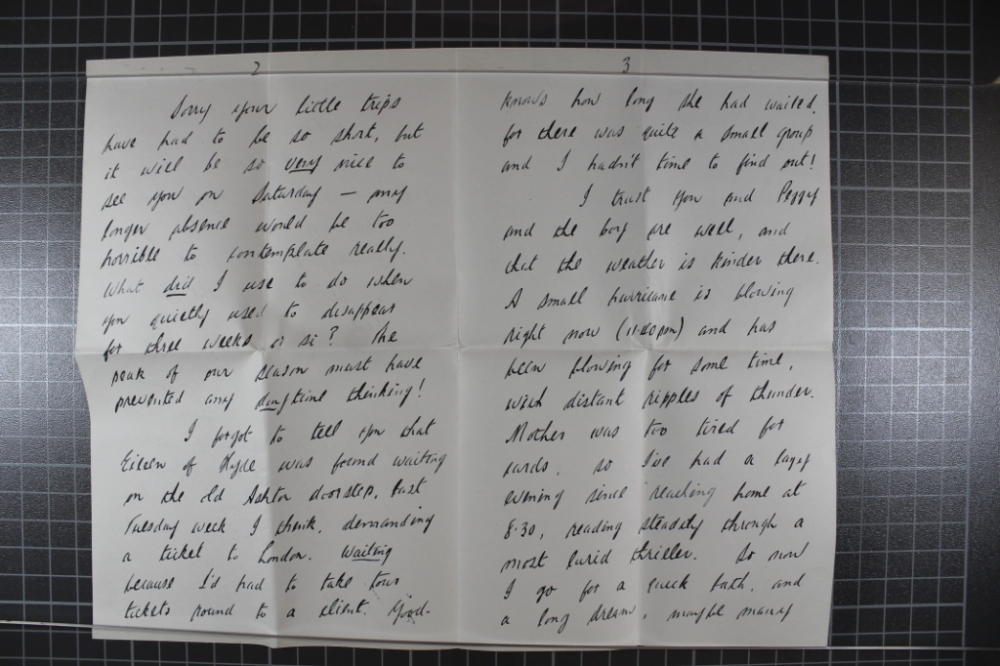 2
Sorry your little trips
have had to be so short, but
it will be so very nice to
see you on Saturday — any
longer absence would be too
horrible to contemplate really.
What did I use to do when
you quietly used to disappear
for three weeks or si? The
peak of our season must have
prevented any daytime thinking!
I forgot to tell you that
Eileen of Hyde was found waiting
on the old Ashton doorstep, last
Tuesday week I think, demanding
a ticket to London. Waiting
because I'd had to take tour
tickets round to a client. Good-
3
knows how long she had waited
for there was quite a small group
and I hadn't time to find out!
I trust you and Peggy
and the boy are well, and
that the weather is kinder there.
A small hurricane is blowing
right now (11.20pm) and has
been blowing for some time,
with distant ripples of thunder.
Mother was too tired for
cards, so I've had a lazy
evening since reaching home at
8.30, reading steadily through a
most lurid thriller. So now
I go for a quick bath, and
a long dream, maybe many